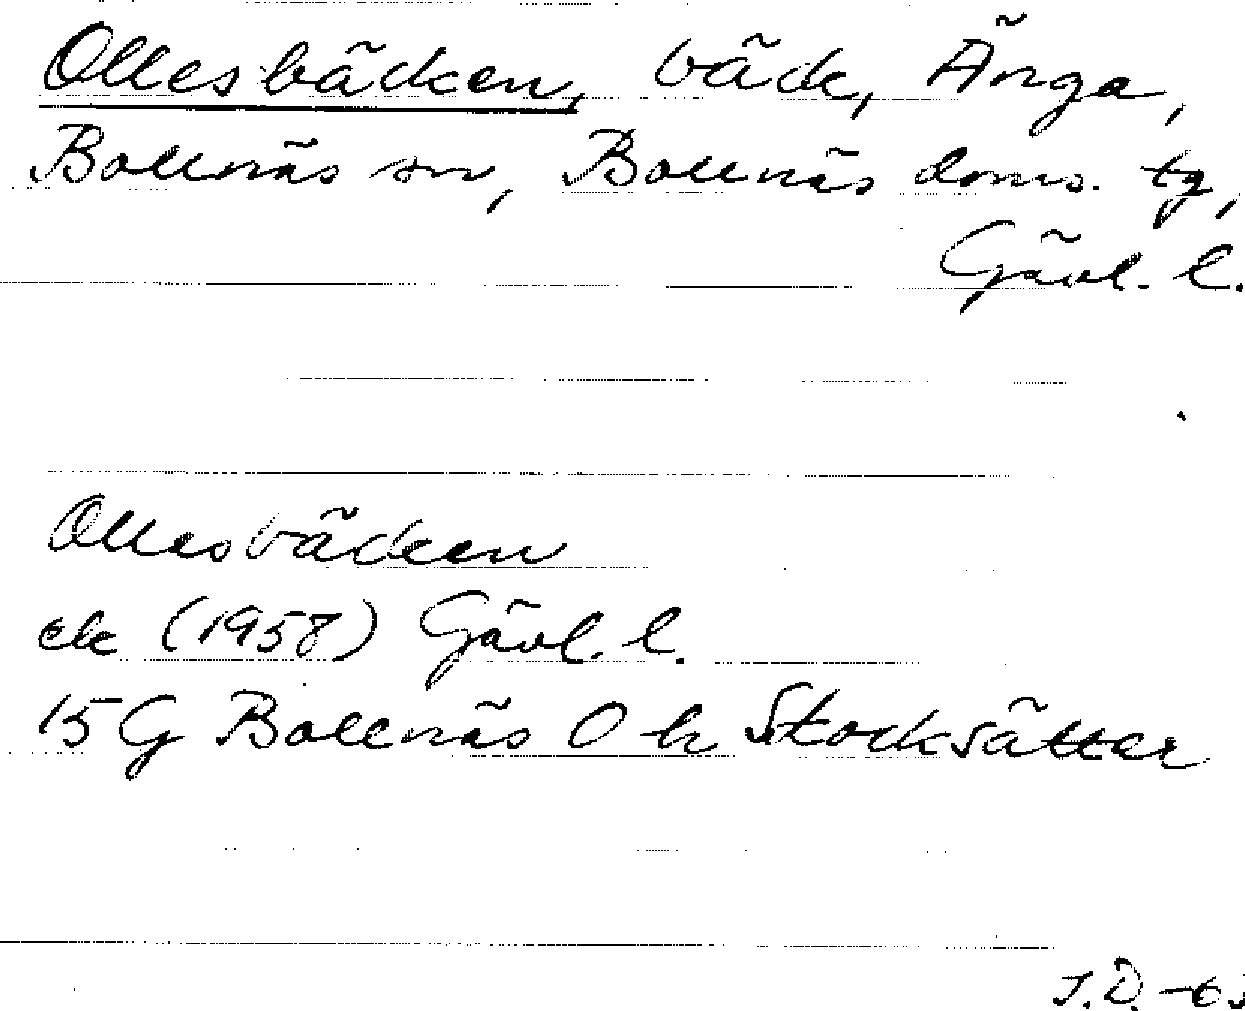 Ollesbäcken, bäck, Änga,
Bollnäs sn, Bollnäs doms. tg,
Gävl. l.
Ollesbäcken
ek (1958) Gävl. l.
15 G Bollnäs O h Stocksätter